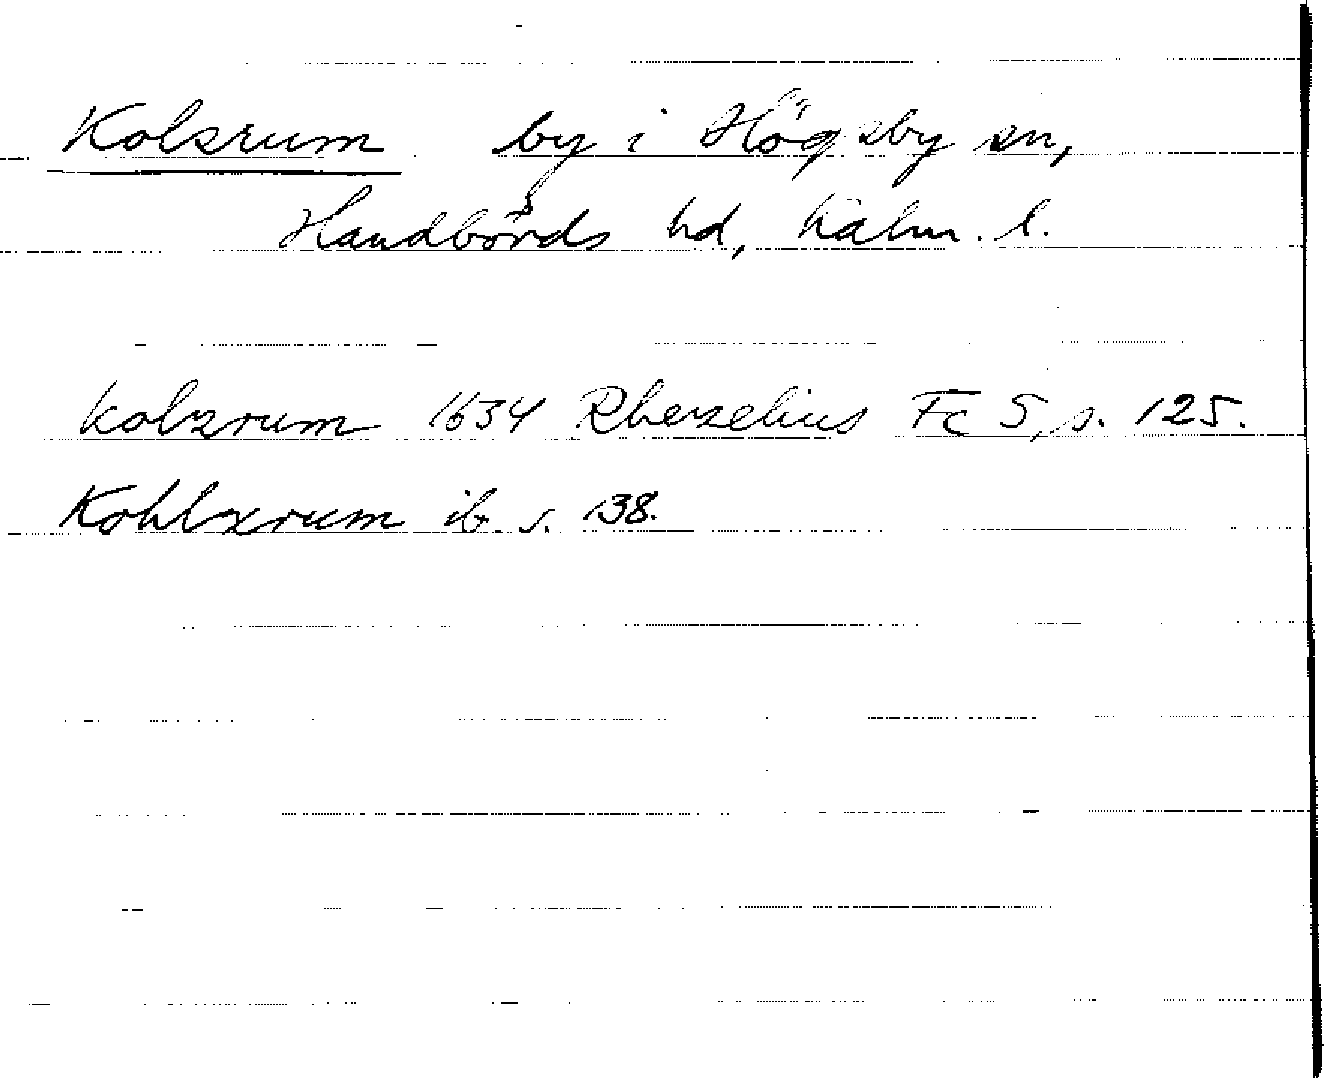 Kolsrum by i Högsby sn,
Handbörds hd, Kalm. l.
Kolzrum 1634 Rhezelius Fc 5, s. 125.
Kohlxrum ib. s. 138.